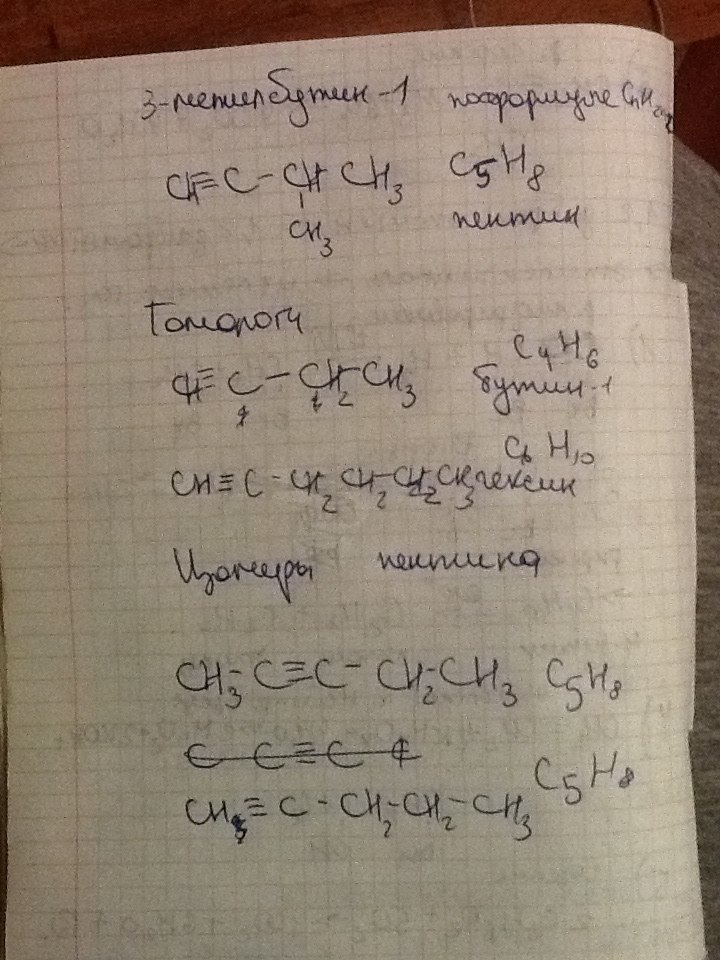 3-метилбутин-1 по формуле CnH2n-2
CH≡C-CH CH3 C5H8
CH3 пентин
Гомологи
C4H6
CH≡C-CH2-CH3 бутин-1
C6H10
CH≡C-CH2 CH2 CH2 CH3 гексин
Изомеры пентина
CH3-C≡C-CH2-CH3 C5H8
C C≡C C
C5H8
CH≡C-CH2-CH2-CH3